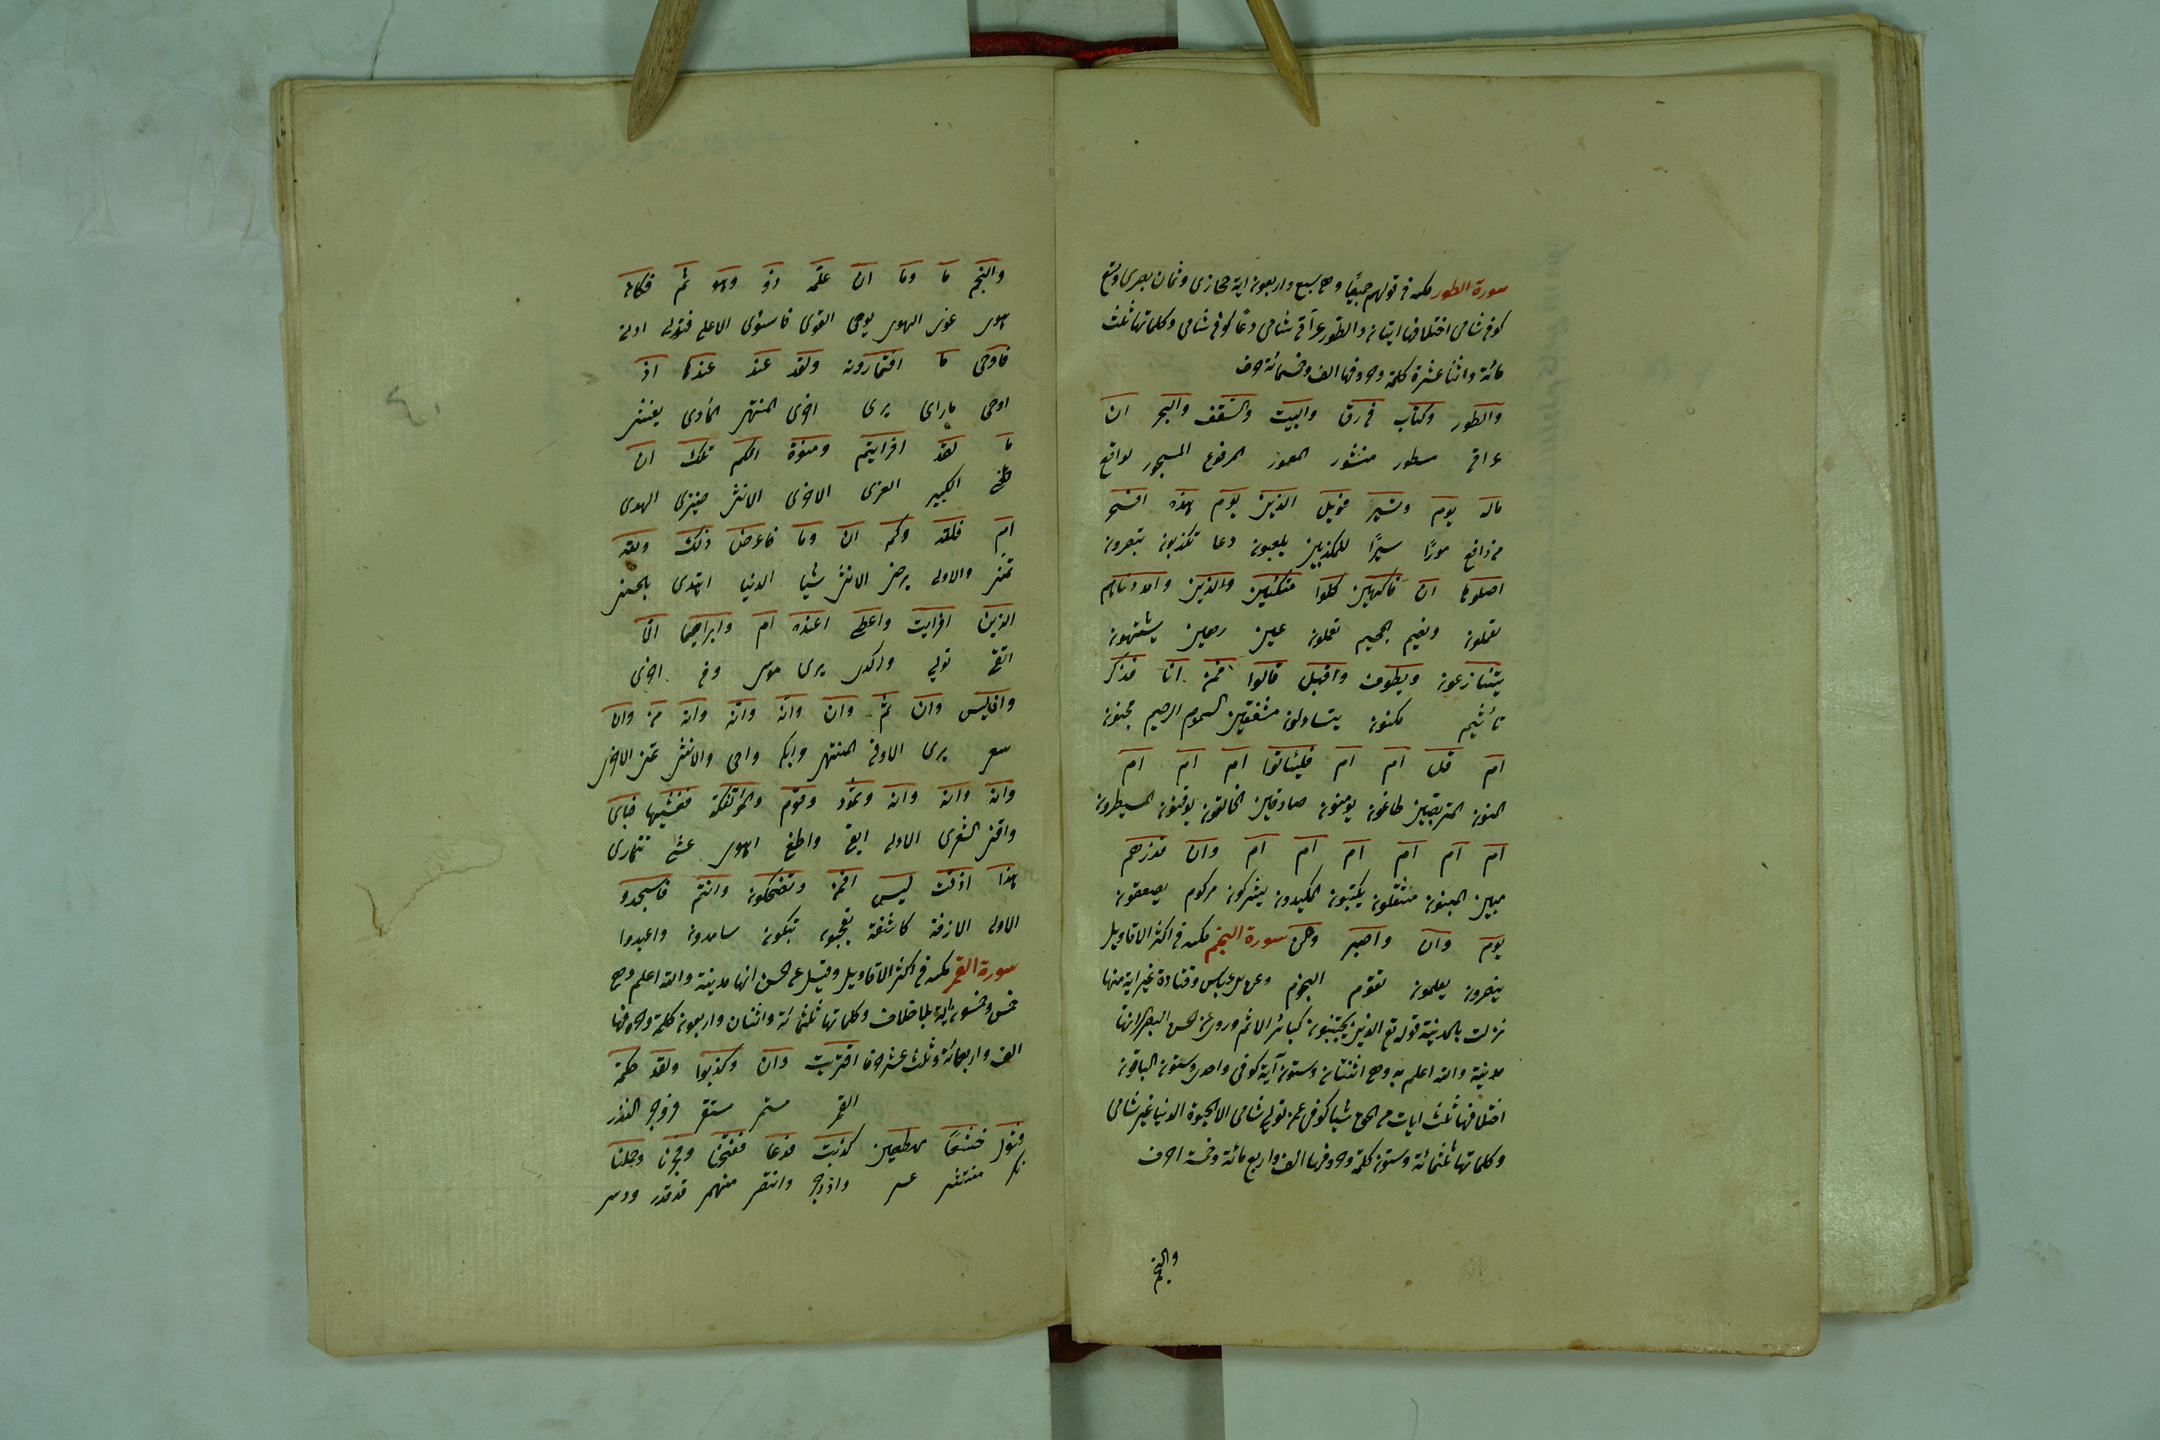 سورة الطور مكية في قولهم جميعًا وهي سبع واربعون اية حجازى وثمان بصرى وتسع
كوفى شامى اختلافها ايتان والطور عراقى شامى دعًا كوفى شامى وكلماتها ثلث
مائة واثنا عشرة كلمة وحروفها الف وخمسمائة حرف
والطور وكتاب فى رق والبيت والسقف والبحر ان
عراقى مسطور منشور المعمور المرفوع المسجور لواقع
ماله يوم وتسير فويل الذين يوم هذه افسحر
من دافع مورًا سيرًا للمكذبين يلعبون دعا تكذبون تبصرون
اصلوها ان فاكهين كلوا متكئين والذين وامددناهم
تعملون ونعيم الجحيم تعملون عين رهين يشتهون
يتنازعون ويطوف واقبل قالوا فمن انا فذكر
تأثيم مكنون يتساءلون مشفقين السموم الرحيم مجنون
ام قل ام ام فليأتوا ام ام ام
المنون المتربصين طاغون يؤمنون صادقين الخالقون يوقنون المسيطرون
ام ام ام ام ام ام وان فذرهم
مبين البنون مثقلون يكتبون المكيدون يشركون مركوم يصعقون
يوم وان واصبر ومن سورة النجم مكية فى اكثر الاقاويل
ينصرون يعلمون تقوم النجوم وعن ابن عباس وقتادة غير اية منها
نزلت بالمدينة قوله تع الذين يجتنبون كبائر الاثم وروى عن الحسن البصرى انها
مدنية والله اعلم به وهي اثنتان وستون آية كوفى واحدى وستون الباقون
اختلافها ثلث ايات من الحق شيا كوفى عمن تولى شامى الا الحيوة الدنيا غير شامى
وكلماتها ثلثمائة وستون كلمة وحروفها الف واربع مائة وخمسة احرف
والنجم
والنجم ما وما ان علمه ذو وهو ثم فكان
هوى غوى الهوى يوحى القوى فاستوى الاعلى فتدلى ادنى
فاوحى ما افتمارونه ولقد عند عندها اذ
اوحى ماراى يرى اخرى المنتهى المأوى يغشى
ما لقد افرايتم ومنوة الكم تلك ان
طغى الكبرى العزى الاخرى الانثى ضيزى الهدى
ام فلله وكم ان وما فاعرض ذلك ولله
تمنى والاولى يرضى الانثى شيا الدنيا اهتدى بالحسنى
الذين افرايت واعطى اعنده ام وابراهيم الا
اتقى تولى واكدى يرى موسى وفى اخرى
وان ليس وان ثم وان وانه وانه وانه من وان
سعى يرى الاوفى المنتهى وابكى واحى والانثى تمنى الاخرى
وانه وانه وانه وثمود وقوم والمؤتفكة فغشيها فباى
واقنى الشعرى الاولى ابقى واطغى اهوى غشى تتمارى
هذا ازفت ليس افمن وتضحكون وانتم فاسجدو
الاولى الازفة كاشفة تعجبون تبكون سامدون واعبدوا
سورة القمر مكية فى اكثر الاقاويل وقيل عن الحسن انها مدينة والله اعلم وهي
خمس وخمسون اية بلا خلاف وكلماتها ثلثمائة واثنان واربعون كلمة وحروفها
الف واربعمائة وثلث عشر حرفا اقتربت وان وكذبوا ولقد حكمة
القمر مستمر مستقر مزدجر النذر
فتول خشعًا مهطعين كذبت فدعا ففتحنا وفجرنا وحملنا
نكر منتشر عسر وازدجر وانتصر منهمر قد قدر ودسر